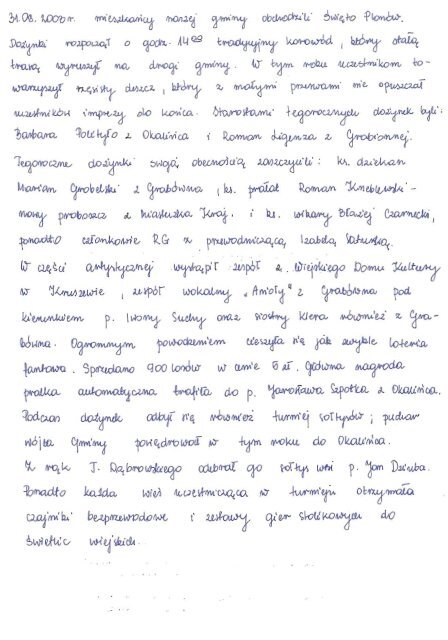 31.08.2008r. mieszkańcy naszej gminy obchodzili Święto Plonów.
Dożynki rozpoczął o godz. 14⁰⁰ tradycyjny korowód, który stałą
trasą wyruszył na drogi gminy. W tym roku uczestnikom to-
warzyszył rzęsisty deszcz, który z małymi przerwami nie opuszczał
uczestników imprezy do końca. Starostami tegorocznych dożynek byli:
Barbara Polityło z Okalińca i Roman Ligenza z Grabionnej.
Tegoroczne dożynki swoją obecnością zaszczycili: ks. dziekan
Marian Grobelski z Grabówna, ks. prałat Roman Kneblewski -
nowy proboszcz z Miasteczka Kraj. i ks. wikary Błażej Czarnecki,
ponadto członkowie RG z przewodniczącą Izabelą
W części artystycznej wystąpił zespół z Wiejskiego Domu Kultury
w Kruszewie, zespół wokalny "Anioły" z Grabówna pod
kierunkiem p. Iwony Suchy oraz siostry Klera również z Gra-
bówna. Ogromnym powodzeniem cieszyła się jak zwykle loteria
fantowa. Sprzedano 900 losów w cenie 5 zł. Główna nagroda
pralka automatyczna trafiła do p. Jarosława Szpotka z Okalińca.
Podczas dożynek odbył się również turniej sołtysów; puchar
wójta Gminy powędrował w tym roku do Okalińca.
Z rąk J. Dąbrowskiego odebrał go sołtys wsi p. Jan Dziuba.
Ponadto każda wieś uczestnicząca w turnieju otrzymała
czajniki bezprzewodowe i zestawy gier stolikowych do
świetlic wiejskich.